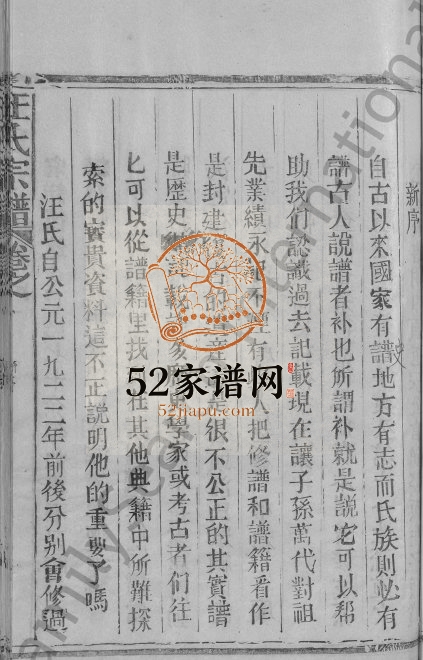 汪氏宗譜卷之
新序
自古以來國家有譜地方有志而氏族則必有
史
譜古人說譜者补也所謂补就是說它可以帮
助我们認識過去記載現在讓子孫萬代對祖
先業績永不有人把修譜和譜籍看作
是封建的很不公正的其實譜
是歴史學家或考古者们往
匕可以從譜籍里找在其他典籍中所難探
索的寳貴資料這不正説明他的重要了嗎
汪氏自公元一九二三年前後分别曾修過
52家谱网
52jiapu.com
FamilySearch International